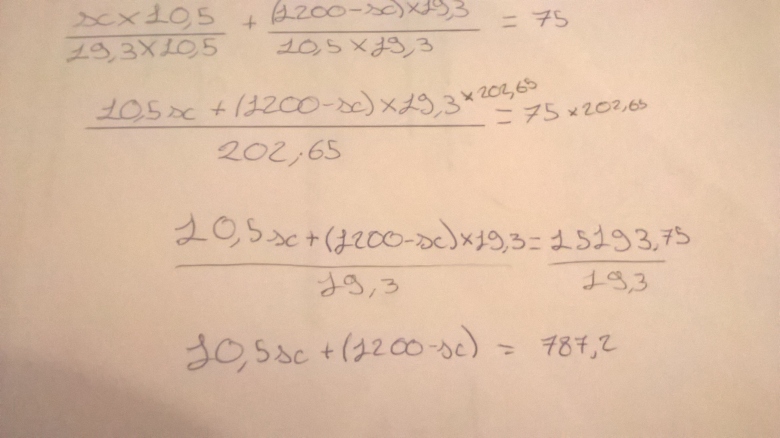 x×10,5 / 19,3×10,5 + (1200-x)×19,3 / 10,5×19,3 = 75
10,5x + (1200-x)×19,3 ×202,65 / 202,65 = 75 ×202,65
10,5x+(1200-x)×19,3 / 19,3 = 15193,75 / 19,3
10,5x+(1200-x) = 787,2